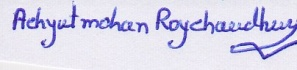 Achyutmohan Roychaudhury